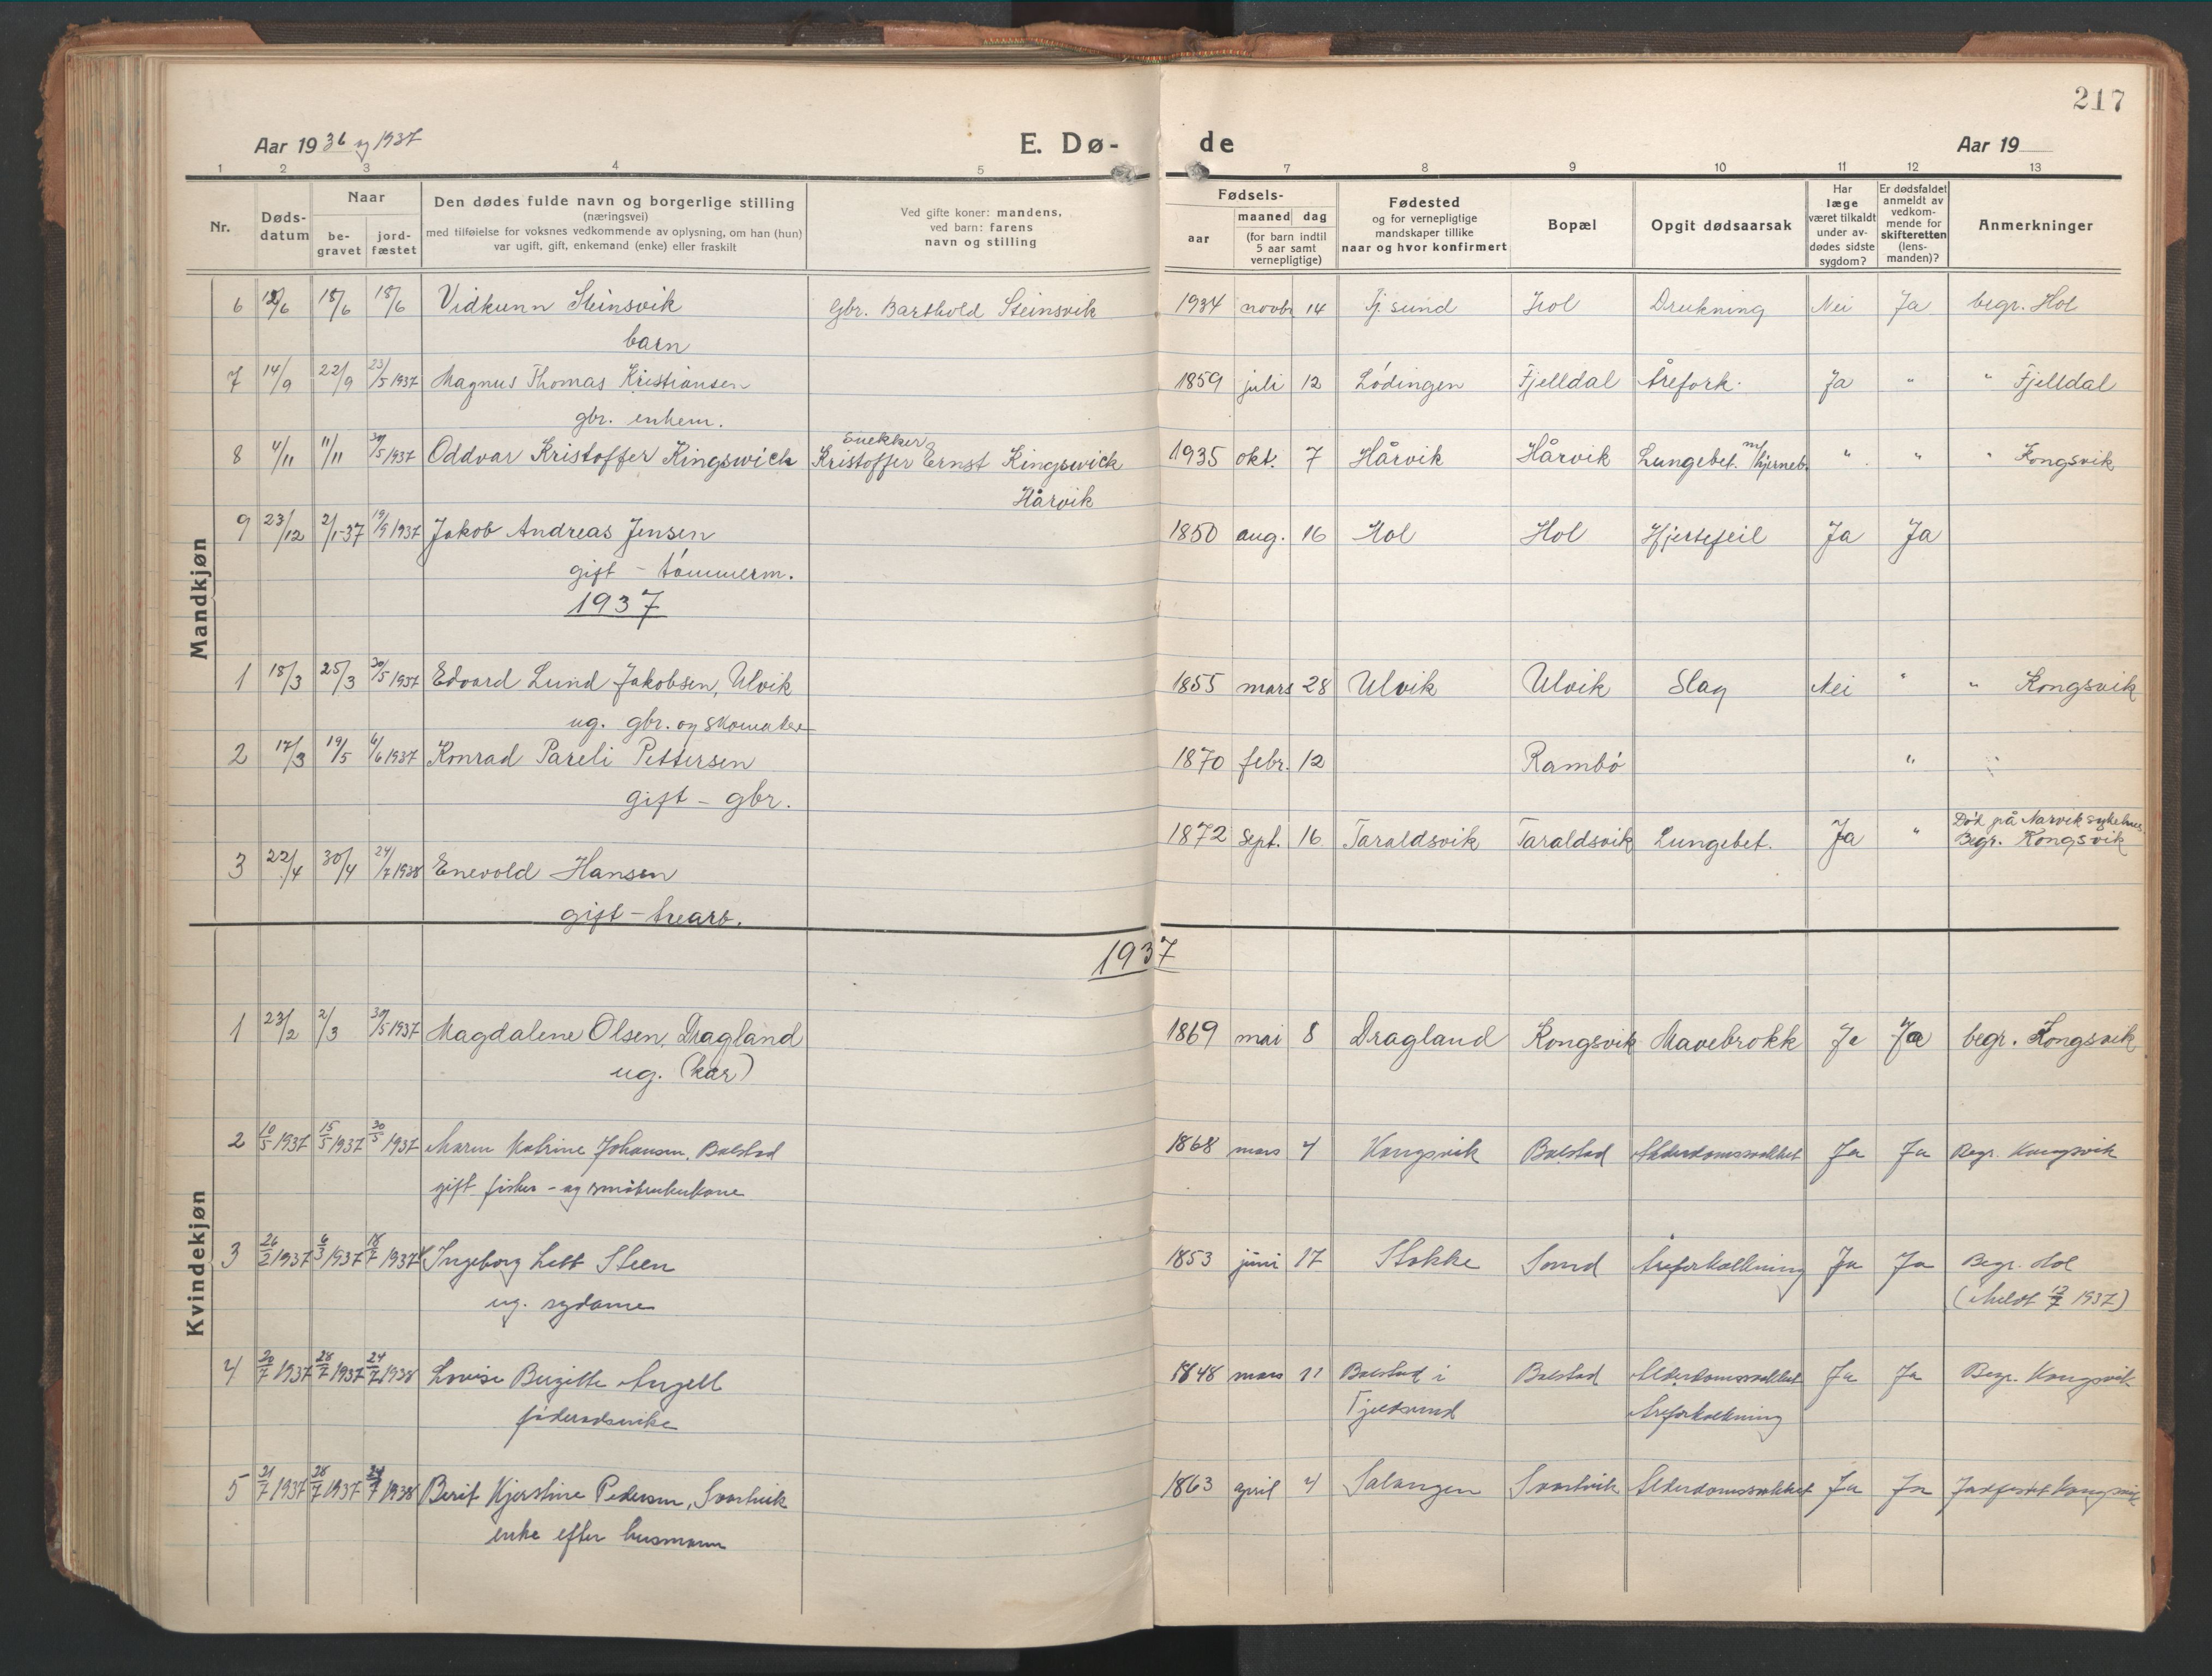 217
Aar 1936 og 1937 E. Dø- de Aar 19
1 2 3 4 5 7 8 9 10 11 12 13
Nr.
Døds-
datum
Naar
be-
gravet
jord-
fæstet
Den dødes fulde navn og borgerlige stilling
(næringsvei)
med tilføielse for voksnes vedkommende av oplysning, om han (hun)
var ugift, gift, enkemand (enke) eller fraskilt
Ved gifte koner: mandens,
ved barn: farens
navn og stilling
Fødsels-
aar
maaned dag
(for barn indtil
5 aar samt
vernepligtige)
Fødested
og for vernepligtige
mandskaper tillike
naar og hvor konfirmert
Bopæl
Opgit dødsaarsak
Har
læge
været tilkaldt
under av-
dødes sidste
sygdom?
Er dødsfaldet
anmeldt av
vedkom-
mende for
skifteretten
(lens-
manden)?
Anmerkninger
Mandkjøn
6 12/6 18/6 18/6 Vidkunn Steinsvik Gbr. Barthold Steinsvik 1934 novbr 14 Fj. sund Hol Drukning Nei Ja begr. Hol
barn
7 14/9 22/9 23/5 1937 Magnus Thomas Kristiansen 1859 juli 12 Lödingen Fjelldal Årefork. Ja " " Fjelldal
gbr. enkem.
Snekker
8 4/11 11/11 30/5 1937 Oddvar Kristoffer Kingswick Kristoffer Ernst Kingswick 1935 okt. 7 Hårvik Hårvik Lungebet. m/hjerneb. " " " Kongsvik
Hårvik
9 23/12 2/1-37 19/9 1937 Jakob Andreas Jensen 1850 aug. 16 Hol Hol Hjertefeil Ja Ja
gift - tömmerm.
1937
1 18/3 25/3 30/5 1937 Edvard Lund Jakobsen, Ulvik 1855 mars 28 Ulvik Ulvik Slag Nei " " Kongsvik
ug. gbr. og skomaker
2 17/3 19/5 6/6 1937 Konrad Pareli Pettersen 1870 febr. 12 Rambö " "
gift - gbr.
3 22/4 30/4 24/7 1938 Enevold Hansen 1872 sept. 16 Taraldsvik Taraldsvik Lungebet. Ja " Död på Narvik sykehus.
Begr. Kongsvik
gift - trearb.
1937
Kvindekjøn
1 23/2 2/3 30/5 1937 Magdalene Olsen, Dragland 1869 mai 8 Dragland Kongsvik Mavebrokk Ja Ja begr. Kongsvik
ug. (kår)
2 10/5 1937 15/5 1937 30/5 1937 Maren Katrine Johansen, Balstad 1868 mars 4 Kongsvik Balstad Alderdomssvakhet Ja Ja Begr. Kongsvik
gift fisker- og småbrukerkone
3 26/2 1937 6/3 1937 18/7 1937 Ingeborg Lett Steen 1853 juni 17 Stokke Sand Åreforkalkning Ja Ja Begr. Hol
ug. sydame (Meldt 12/7 1937)
4 20/7 1937 28/7 1937 24/7 1938 Lovise Birgitte Angell 1848 mars 11 Balstad i Balstad Alderdomssvakhet Ja Ja Begr. Kongsvik
föderådsenke Fjeldsund Åreforkalkning
5 21/7 1937 28/7 1937 24/7 1938 Berit Kjerstine Pedersen, Svartvik 1863 april 4 Salangen Svartvik Alderdomssvakhet Ja Ja Jordfestet Kongsvik
enke efter husmann